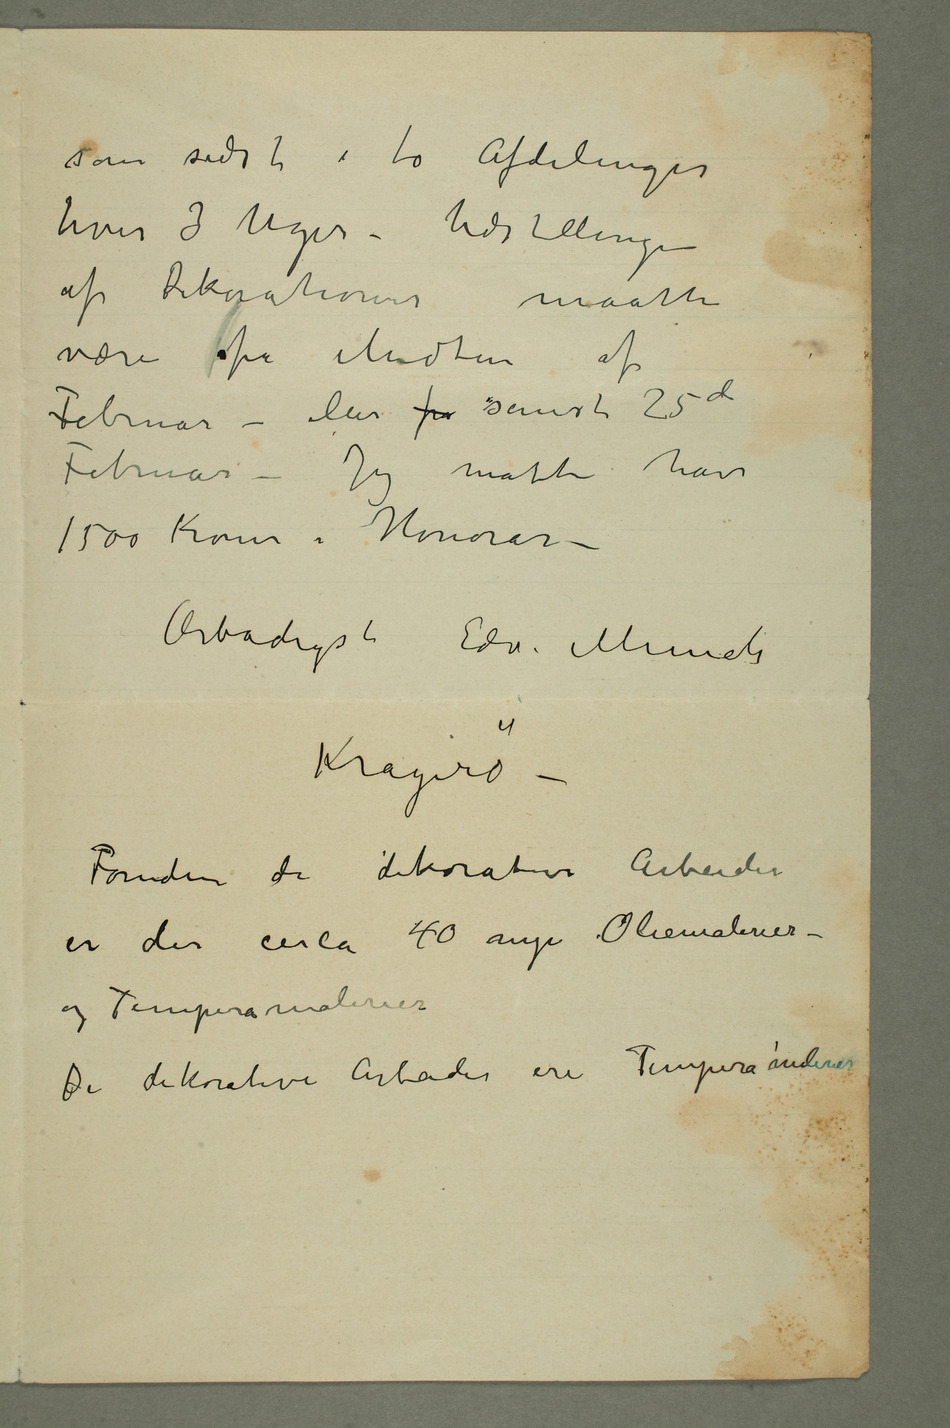 som sidst i to Afdelinger
hver 3 Uger – Udstillingen
af Dekorationer maatte
være fra Midten af
Februar – eller fra senest 25d
Februar – Jeg måtte have
1500 Kroner i Honorar –
Ærbødigst Edv. Munch
Kragerö –
Foruden de dekorative Arbeider
er der cerca 40 nye Oliemalerier –
og Temperamalerier
De dekorative Arbeider ere Temperamalerier